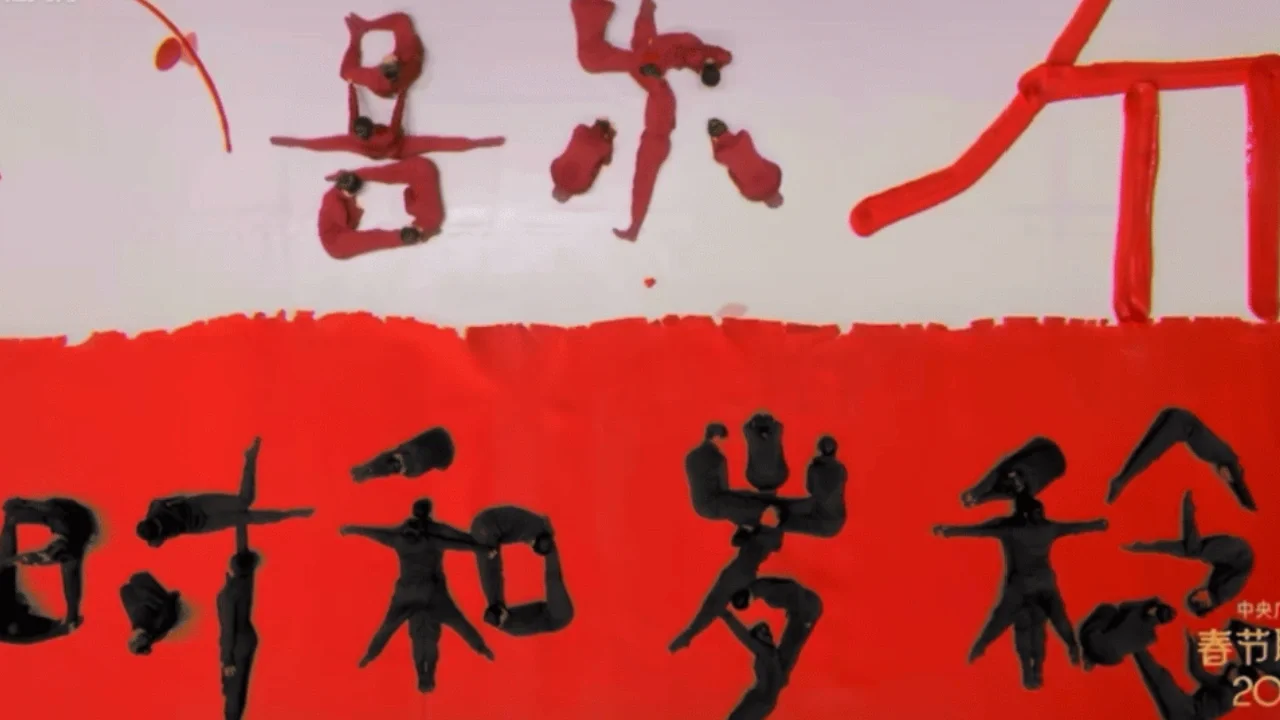 喜乐
时和岁稔
中央
春节
20